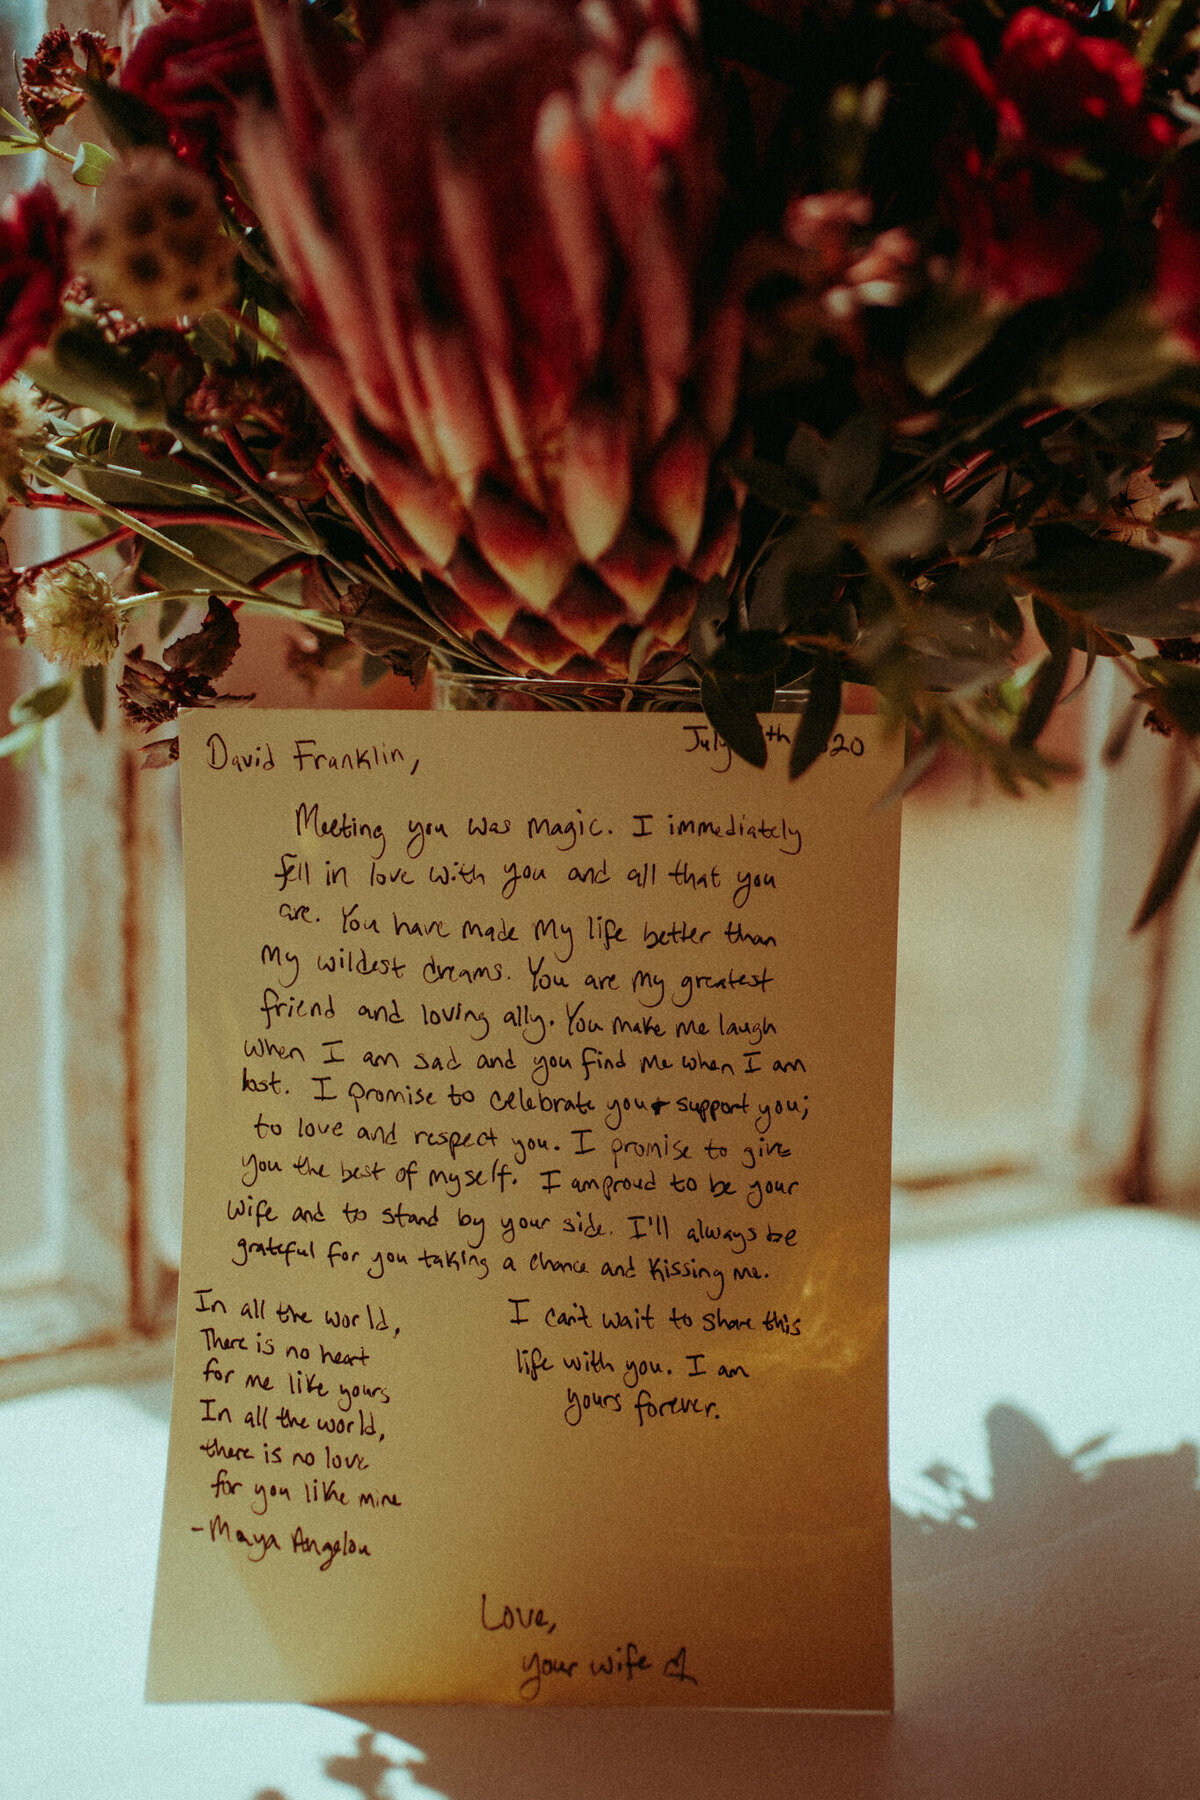 David Franklin,
July th 20
Meeting you was magic. I immediately
fell in love with you and all that you
are. You have made my life better than
my wildest dreams. You are my greatest
friend and loving ally. You make me laugh
when I am sad and you find me when I am
lost. I promise to celebrate you + support you;
to love and respect you. I promise to give
you the best of myself. I am proud to be your
wife and to stand by your side. I'll always be
grateful for you taking a chance and kissing me.
In all the world,
There is no heart
for me like yours
In all the world,
there is no love
for you like mine
-Maya Angelou
I can't wait to share this
life with you. I am
yours forever.
Love,
your wife